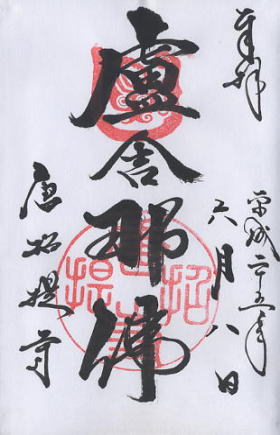 奉拝
平成二十五年
六月八日
盧舎那佛
唐招提寺